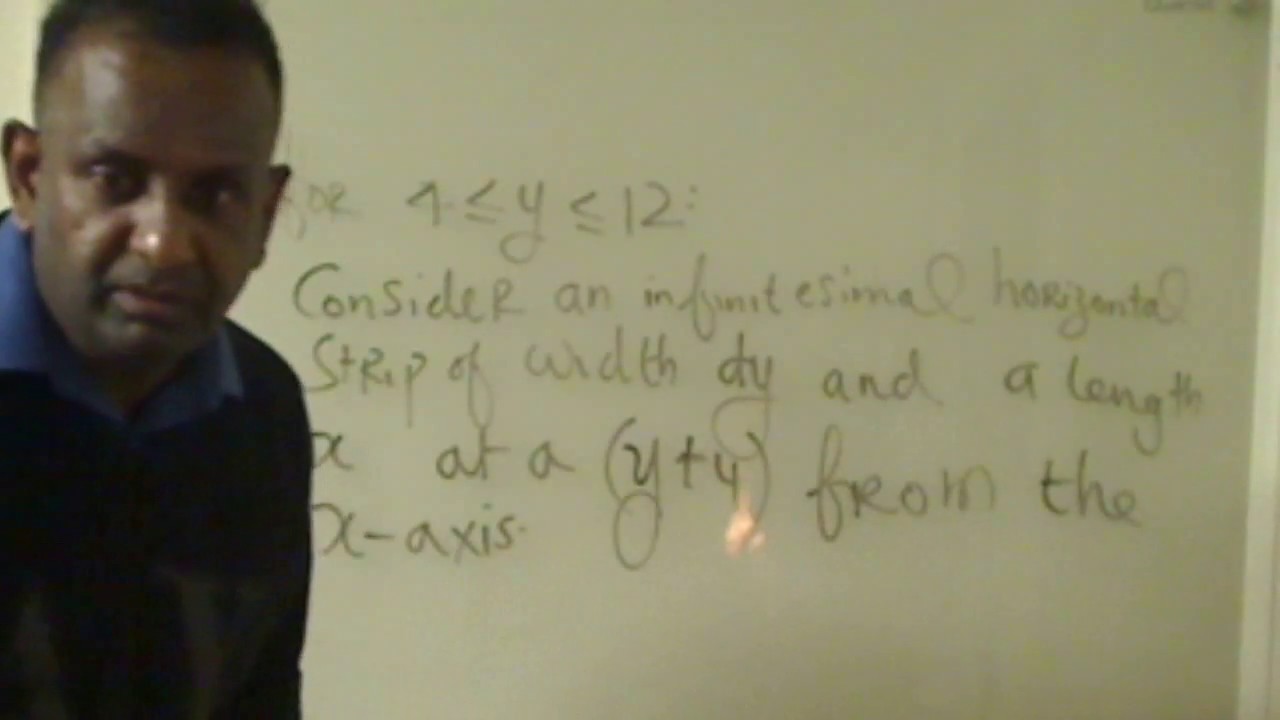 for 4 ≤ y ≤ 12:
Consider an infinitesimal horizontal
strip of width dy and a length
x at a (y+4) from the
x-axis.